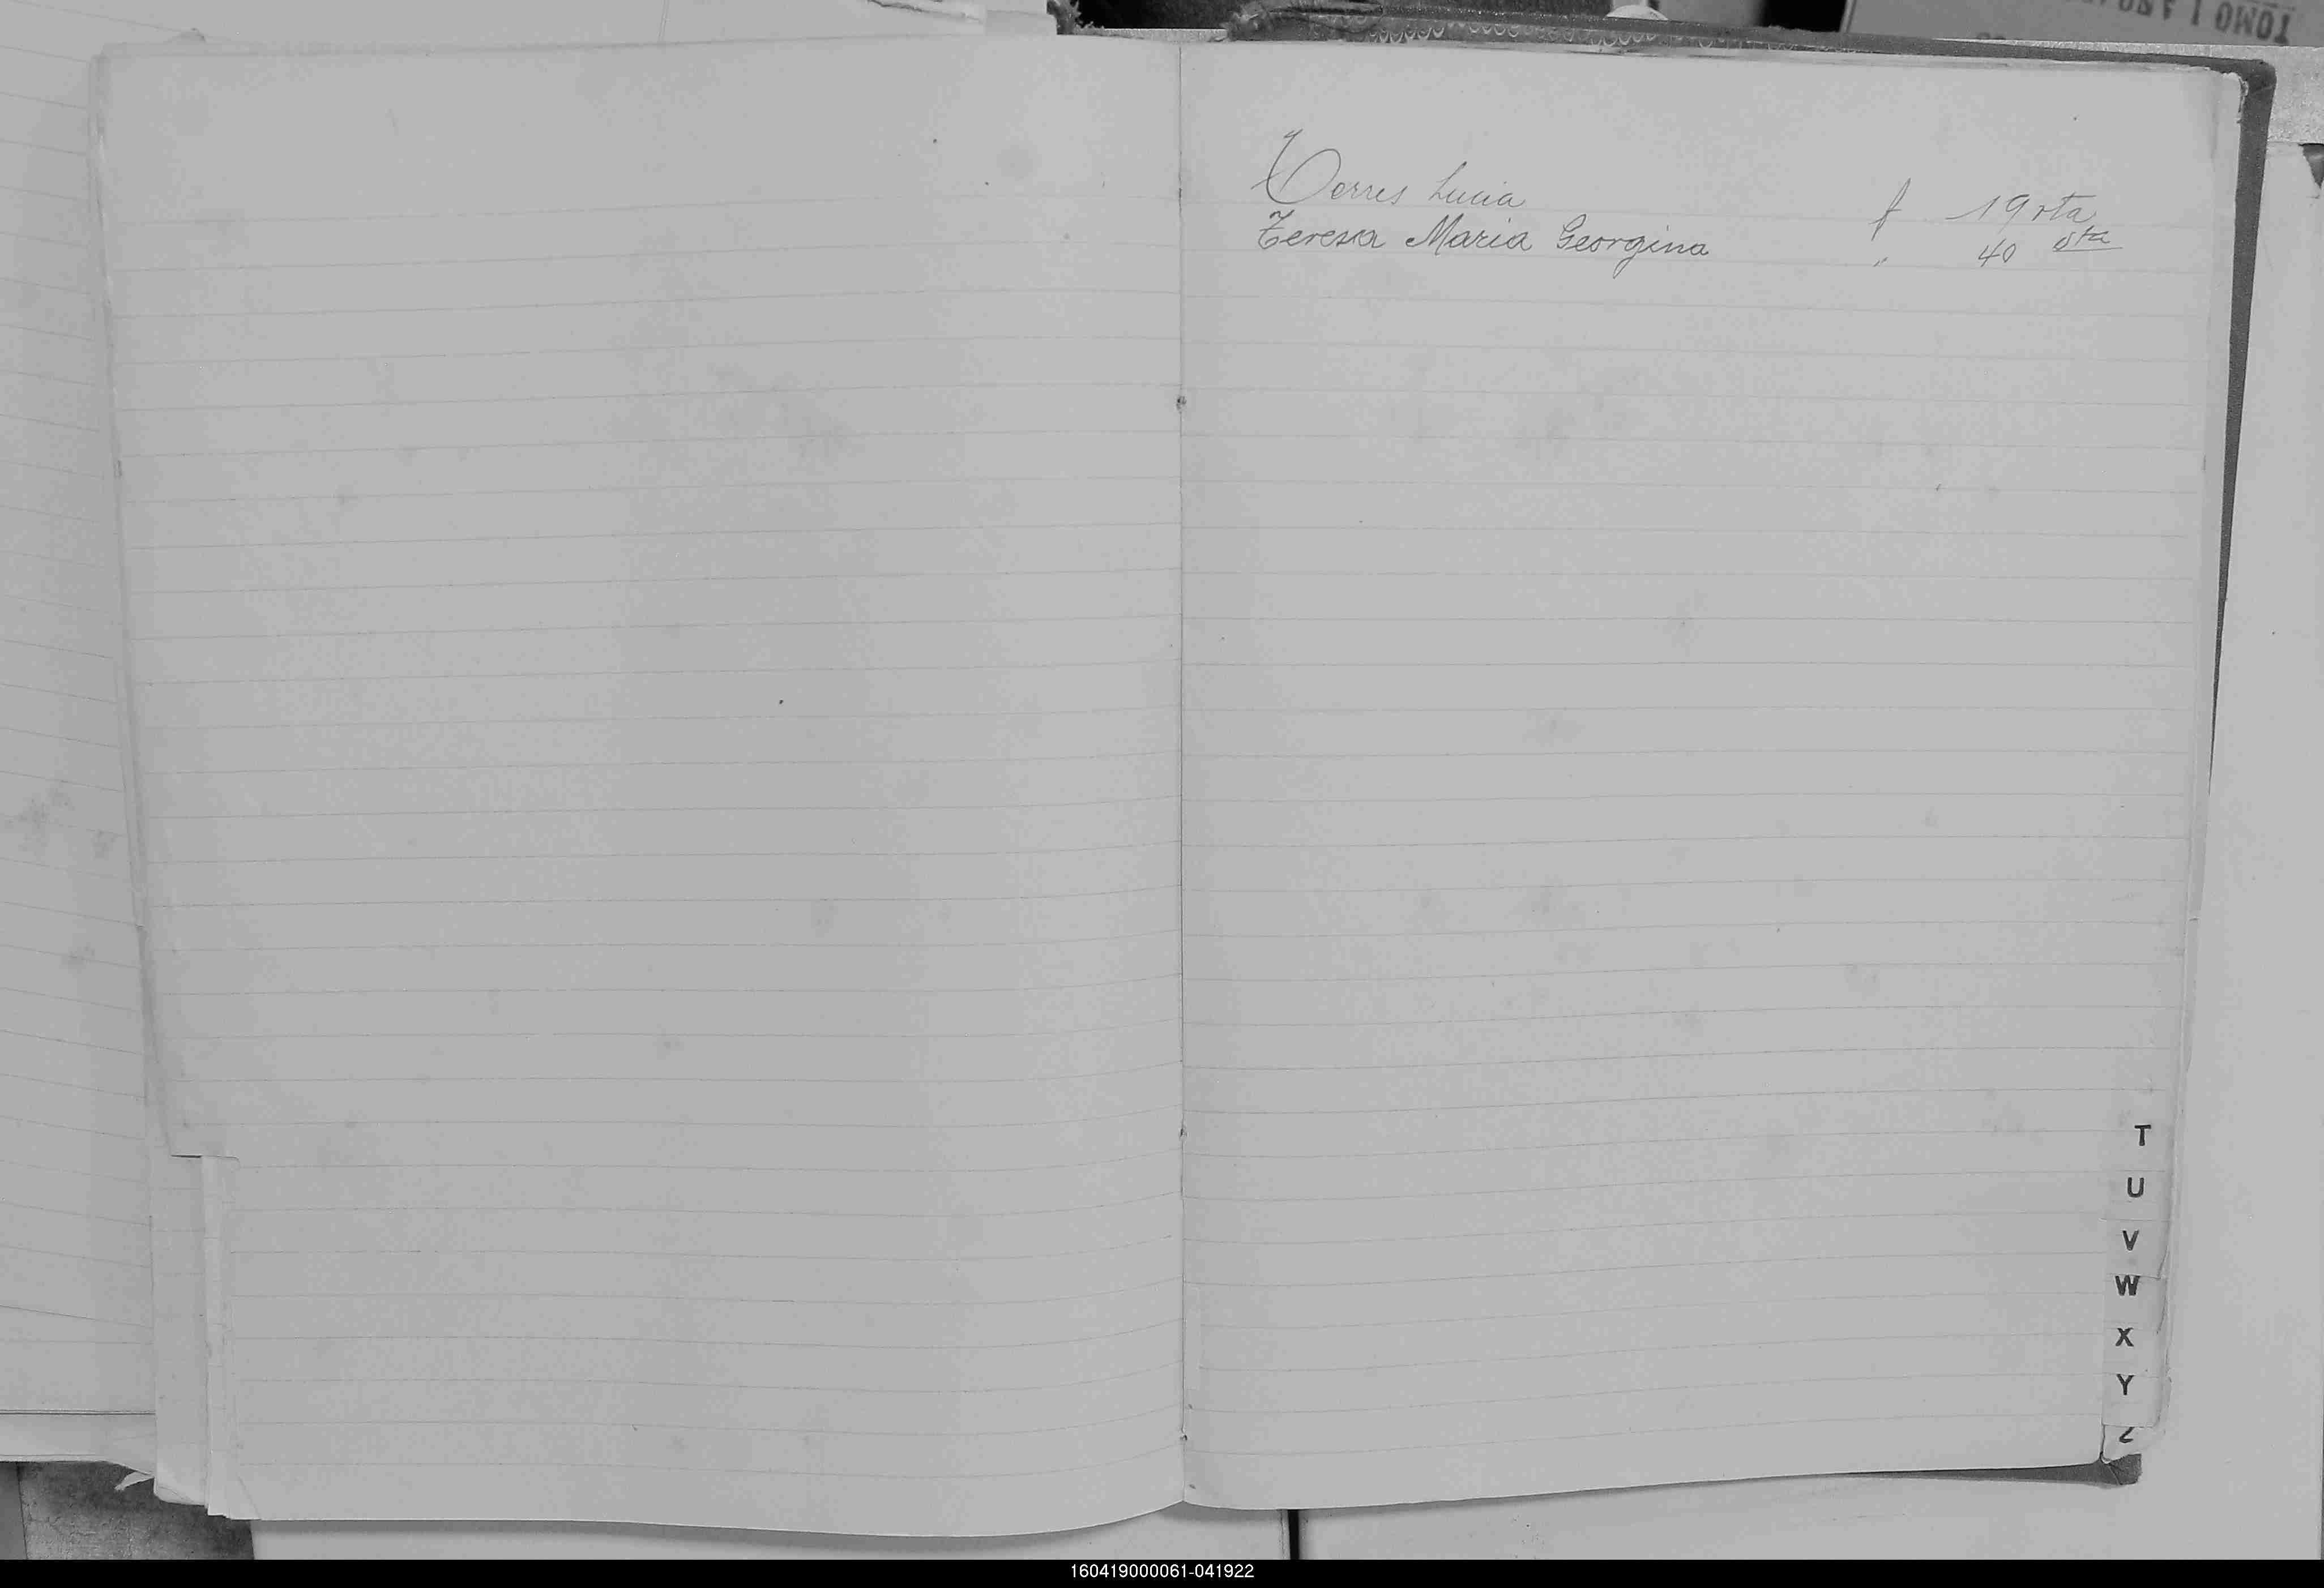 TOMO I
Torres Lucia f 19 vta
Teresa Maria Georgina " 40 vta
T
U
V
W
X
Y
Z
160419000061-041922